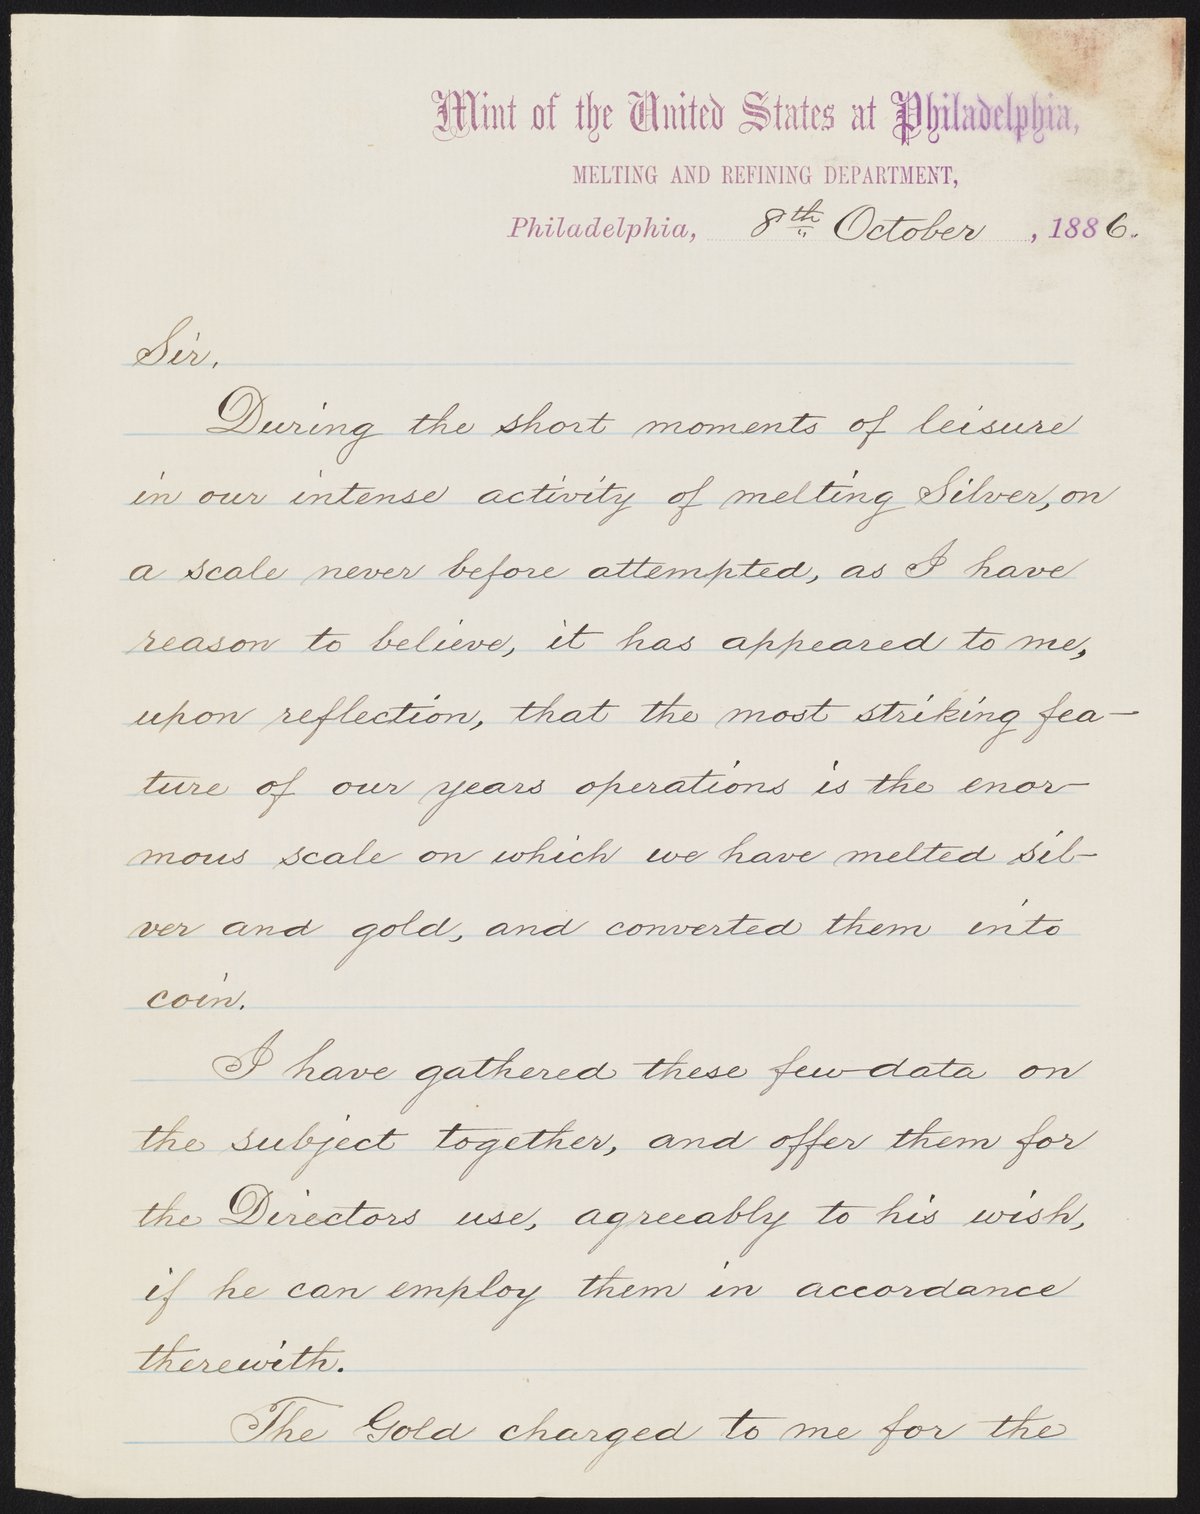 Mint of the United States at Philadelphia,
MELTING AND REFINING DEPARTMENT,
Philadelphia, 8th October, 1886.
Sir,
During the short moments of leisure
in our intense activity of melting Silver, on
a scale never before attempted, as I have
reason to believe, it has appeared to me,
upon reflection, that the most striking fea-
ture of our years operations is the enor-
mous scale on which we have melted sil-
ver and gold, and converted them into
coin.
I have gathered these few data on
the subject together, and offer them for
the Directors use, agreeably to his wish,
if he can employ them in accordance
therewith.
The Gold charged to me for the